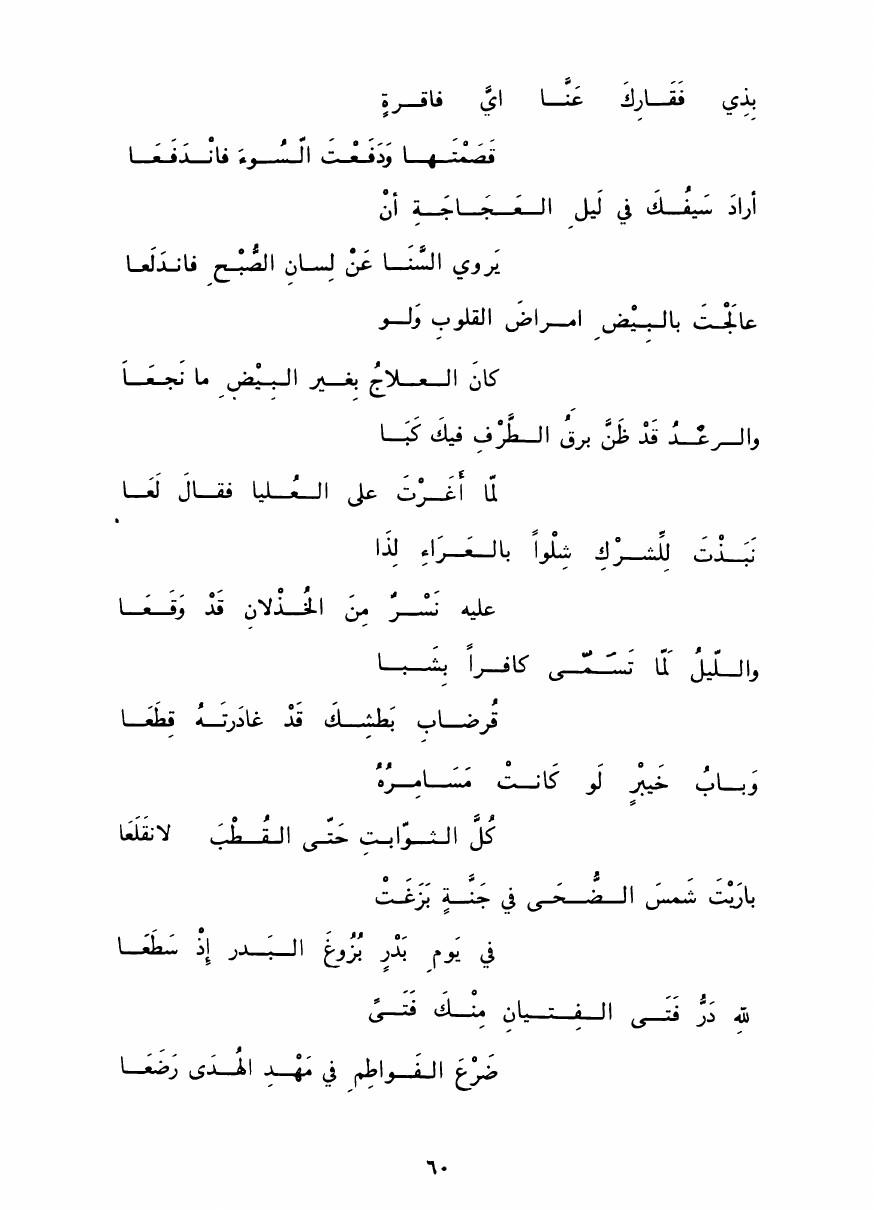 بِذي فَقَارِكَ عَنَّا ايَّ فاقرةٍ
قَصَمْتَها وَدَفَعْتَ الّسُوءَ فانْدَفَعَا
أرادَ سَيفُكَ في لَيل العَجَاجَةِ أنْ
يَروي السَّنَا عَنْ لِسانِ الصُّبْحِ فاندَلَعا
عالَجْتَ بالبِيْضِ امراضَ القلوبِ وَلَو
كانَ العلاجُ بغَيرِ البِيْضِ ما نَجعَاَ
والرعْدُ قَدْ ظَنَّ برقُ الطَّرْفِ فيكَ كَبَا
لمّا أَغَرْتَ على العُليا فقالَ لَعَا
نَبَذْتَ لِلشِّرْكِ شِلْواً بالعَرَاءِ لِذَا
عليه نَسْرٌ مِنَ الخُذْلانِ قَدْ وَقَعَا
والّليلُ لَمّا تَسَمّى كافراً بشَبا
قُرضابِ بَطشِكَ قَدْ غادَرتَهُ قِطَعَا
وَبابُ خَيبْرٍ لَو كانَتْ مَسَامِرُهُ
كُلَّ الثوّابتِ حَتّى القُطْبَ لانقَلَعَا
بارَيْتَ شَمسَ الضُّحَى في جَنَّةٍ بَزَغَتْ
في يَومِ بَدْرٍ بُزُوغَ البَدر إذْ سَطَعَا
للهِ دَرُّ فَتَى الفِتيانِ مِنْكَ فَتَىً
ضَرْعَ الفَواطِمِ في مَهْدِ الهُدَى رَضَعَا
٦٠